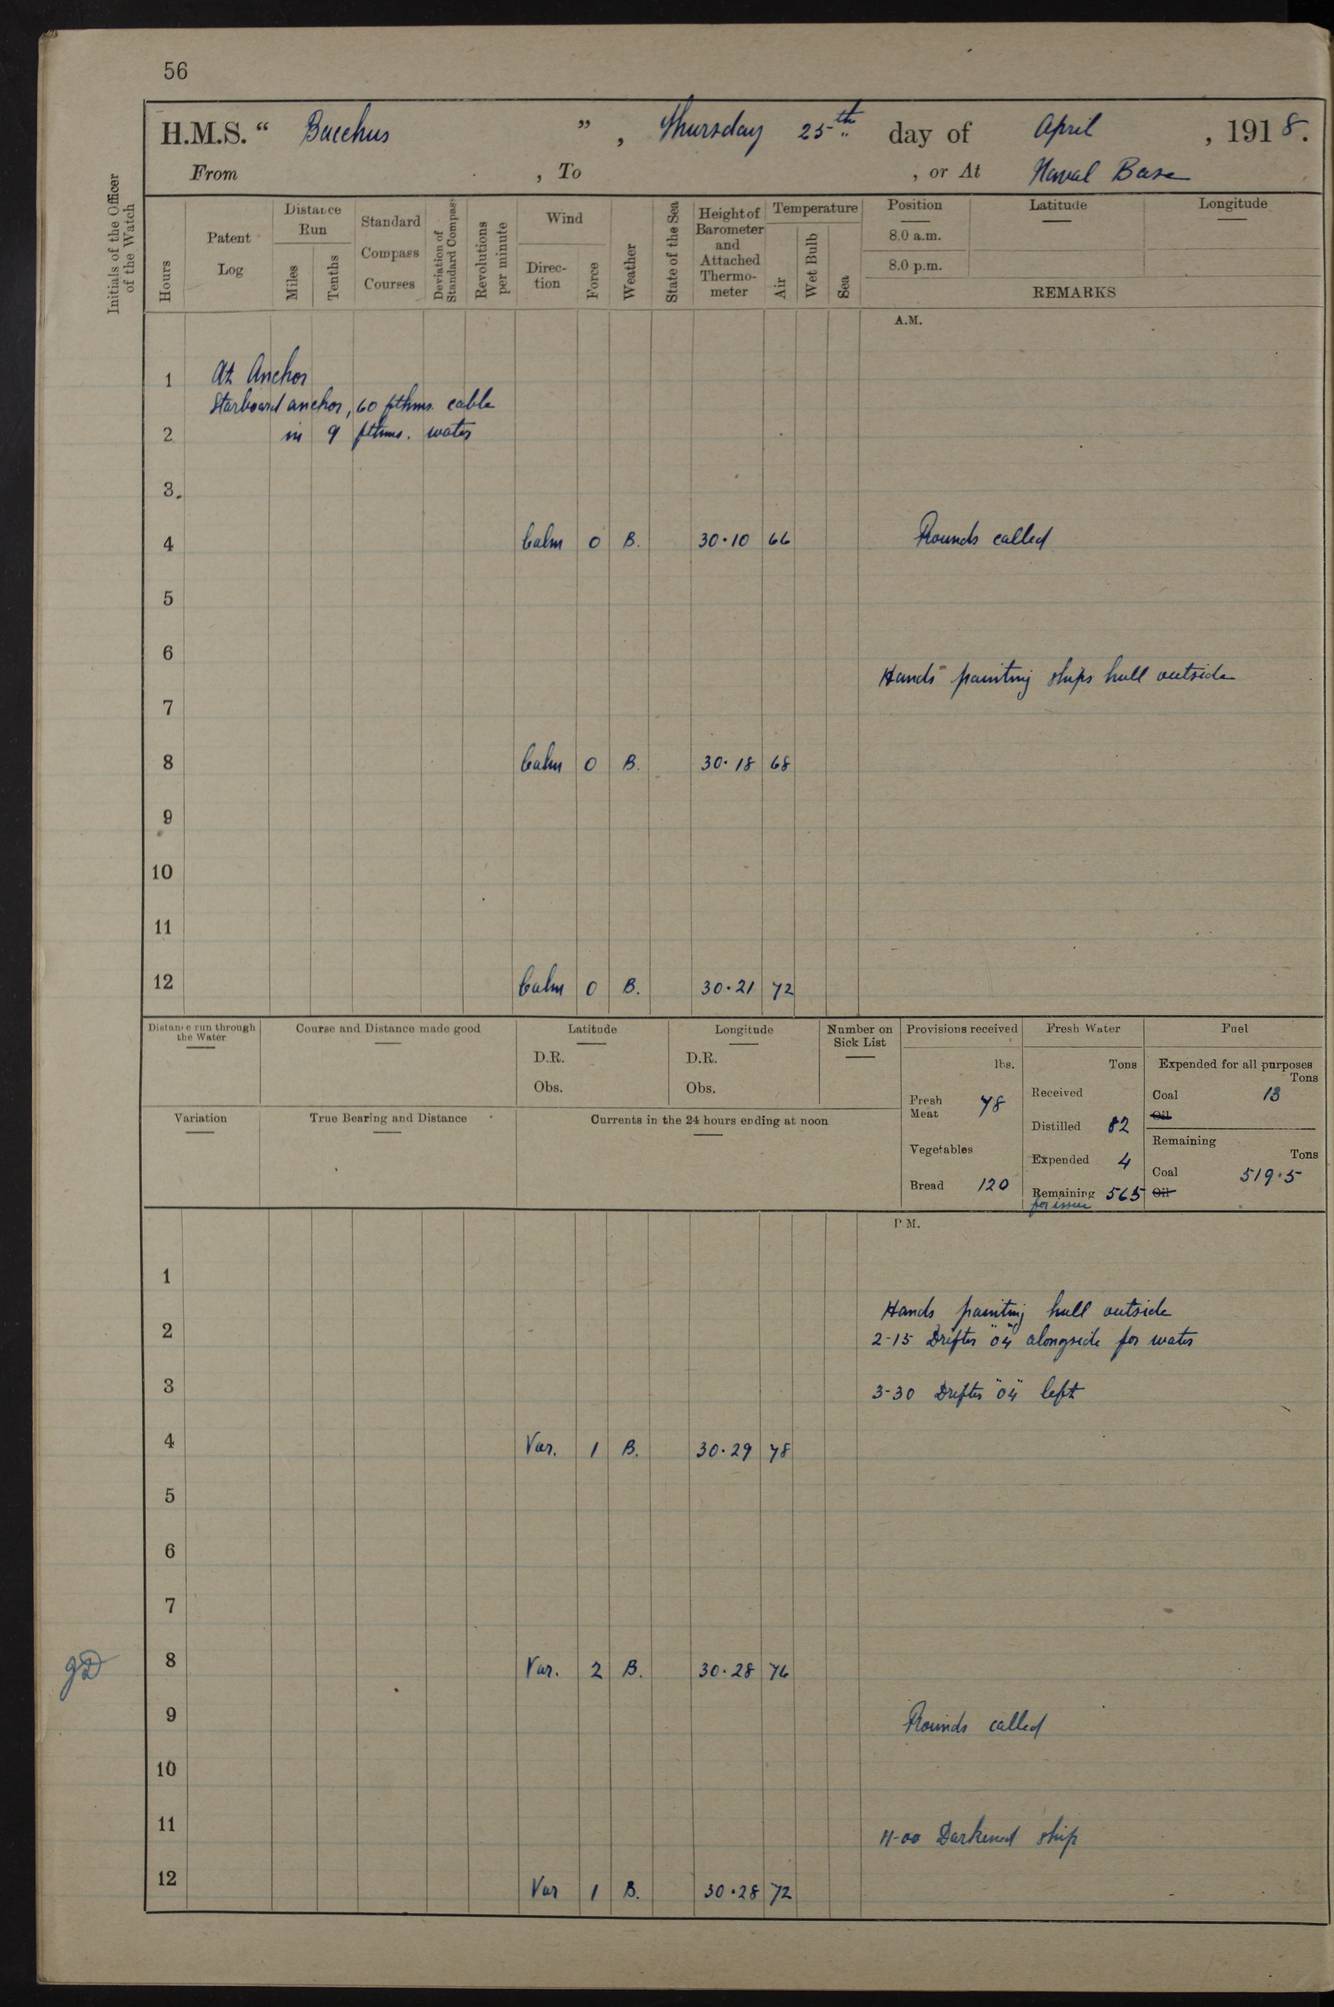 56
H.M.S. “ Bacchus ” , Thursday 25th day of April , 1918.
From , To , or At Naval Base
Initials of the Officer of the Watch
Hours
Patent Log
Distance Run
Miles
Tenths
Standard Compass Courses
Deviation of Standard Compass
Revolutions per minute
Wind
Direc-tion
Force
Weather
State of the Sea
Height of Barometer and Attached Thermo-meter
Temperature
Air
Wet Bulb
Sea
Position
8.0 a.m.
8.0 p.m.
Latitude
Longitude
REMARKS
A.M.
1 At Anchor
Starboard anchor, 60 fthms. cable
2 in 9 fthms. water
3
4 Calm 0 B. 30·10 66 Rounds called
5
6
Hands painting ships hull outside
7
8 Calm 0 B. 30·18 68
9
10
11
12 Calm 0 B. 30·21 72
Distance run through the Water
Course and Distance made good
Latitude
D.R.
Obs.
Longitude
D.R.
Obs.
Number on Sick List
Provisions received
lbs.
Fresh Meat 78
Vegetables
Bread 120
Fresh Water
Tons
Received
Distilled 82
Expended 4
Remaining 565
for issue
Fuel
Expended for all purposes
Tons
Coal 13
Oil
Remaining
Tons
Coal 519·5
Oil
Variation
True Bearing and Distance
Currents in the 24 hours ending at noon
P.M.
1
Hands painting hull outside
2
2-15 Drifter "04" alongside for water
3 3-30 Drifter "04" left
4 Var. 1 B. 30·29 78
5
6
7
8 Var. 2 B. 30·28 76
9 Rounds called
10
11 11-00 Darkened ship
12 Var 1 B. 30·28 72